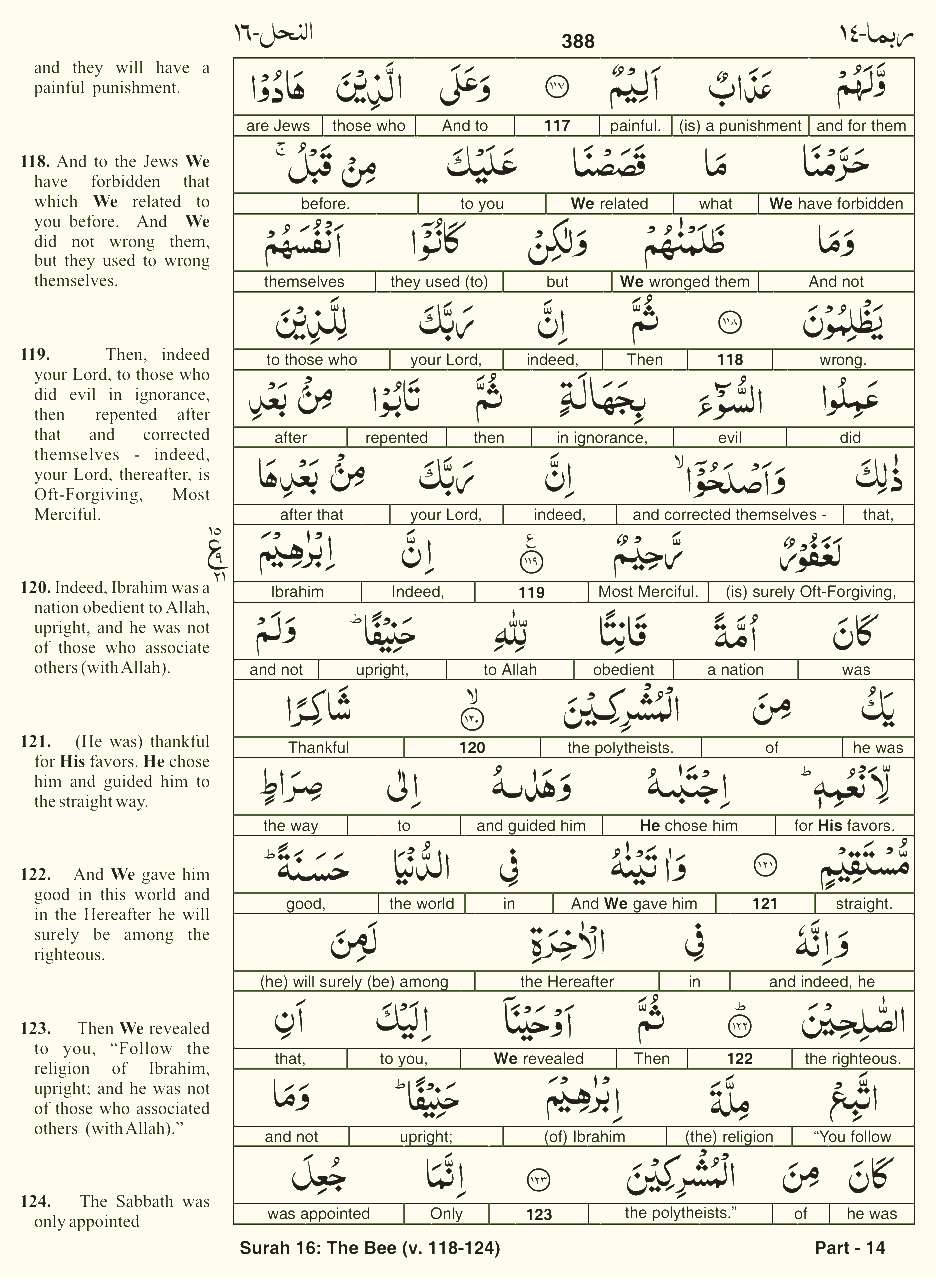 النحل-١٦ 388 ربما-١٤
and they will have a
painful punishment.
118. And to the Jews We
have forbidden that
which We related to
you before. And We
did not wrong them,
but they used to wrong
themselves.
119. Then, indeed
your Lord, to those who
did evil in ignorance,
then repented after
that and corrected
themselves - indeed,
your Lord, thereafter, is
Oft-Forgiving, Most
Merciful.
120. Indeed, Ibrahim was a
nation obedient to Allah,
upright, and he was not
of those who associate
others (with Allah).
121. (He was) thankful
for His favors. He chose
him and guided him to
the straight way.
122. And We gave him
good in this world and
in the Hereafter he will
surely be among the
righteous.
123. Then We revealed
to you, “Follow the
religion of Ibrahim,
upright; and he was not
of those who associated
others (with Allah).”
124. The Sabbath was
only appointed
وَّلَهُمْ عَذَابٌ اَلِيْمٌ ١١٧ وَعَلَى الَّذِيْنَ هَادُوْا
are Jews those who And to 117 painful. (is) a punishment and for them
حَرَّمْنَا مَا قَصَصْنَا عَلَيْكَ مِنْ قَبْلُ ۚ
before. to you We related what We have forbidden
وَمَا ظَلَمْنٰهُمْ وَلٰكِنْ كَانُوْٓا اَنْفُسَهُمْ
themselves they used (to) but We wronged them And not
يَظْلِمُوْنَ ١١٨ ثُمَّ اِنَّ رَبَّكَ لِلَّذِيْنَ
to those who your Lord, indeed, Then 118 wrong.
عَمِلُوا السُّوْٓءَ بِجَهَالَةٍ ثُمَّ تَابُوْا مِنْۢ بَعْدِ
after repented then in ignorance, evil did
ذٰلِكَ وَاَصْلَحُوْٓا ۙ اِنَّ رَبَّكَ مِنْۢ بَعْدِهَا
after that your Lord, indeed, and corrected themselves - that,
لَغَفُوْرٌ رَّحِيْمٌ ١١٩ ع اِنَّ اِبْرٰهِيْمَ
١٥ ع ٩ ٢١
Ibrahim Indeed, 119 Most Merciful. (is) surely Oft-Forgiving,
كَانَ اُمَّةً قَانِتًا لِّلّٰهِ حَنِيْفًا ؕ وَلَمْ
and not upright, to Allah obedient a nation was
يَكُ مِنَ الْمُشْرِكِيْنَ ۙ ١٢٠ شَاكِرًا
Thankful 120 the polytheists. of he was
لِّاَنْعُمِهٖ ؕ اِجْتَبٰىهُ وَهَدٰىهُ اِلٰى صِرَاطٍ
the way to and guided him He chose him for His favors.
مُّسْتَقِيْمٍ ١٢١ وَاٰتَيْنٰهُ فِي الدُّنْيَا حَسَنَةً ؕ
good, the world in And We gave him 121 straight.
وَاِنَّهٗ فِي الْاٰخِرَةِ لَمِنَ
(he) will surely (be) among the Hereafter in and indeed, he
الصّٰلِحِيْنَ ؕ ١٢٢ ثُمَّ اَوْحَيْنَآ اِلَيْكَ اَنِ
that, to you, We revealed Then 122 the righteous.
اتَّبِعْ مِلَّةَ اِبْرٰهِيْمَ حَنِيْفًا ؕ وَمَا
and not upright; (of) Ibrahim (the) religion “You follow
كَانَ مِنَ الْمُشْرِكِيْنَ ١٢٣ اِنَّمَا جُعِلَ
was appointed Only 123 the polytheists.” of he was
Surah 16: The Bee (v. 118-124) Part - 14